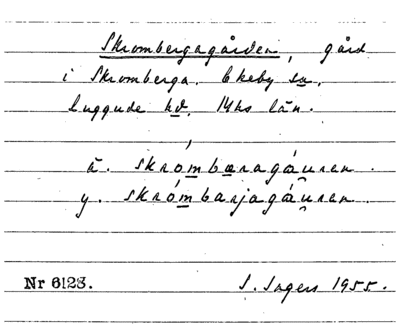 Skrombergagården, gård
i Skromberga. Ekeby sn,
Luggude hd, Mhs län.
ä. skrombæragáuren.
y. skrómbarjagáuren.
Nr 6123. S. Ingers 1955.